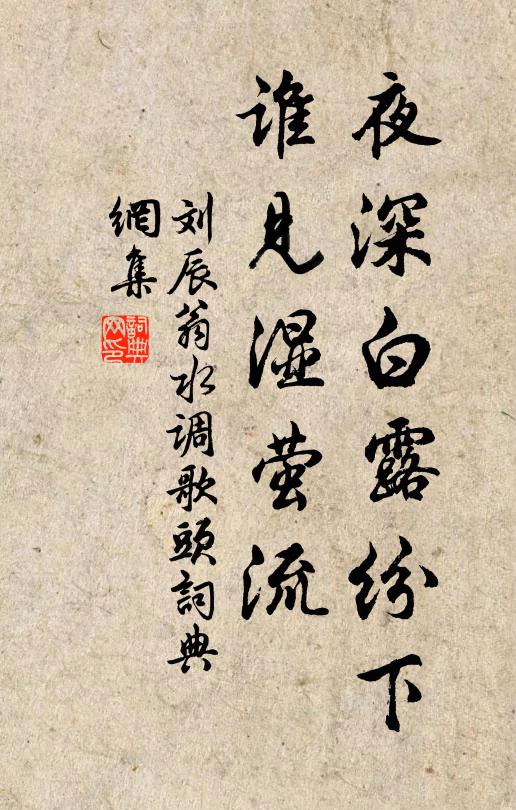 夜深白露纷下
谁见湿萤流
刘辰翁水调歌頭詞典
網集
詞典
网印